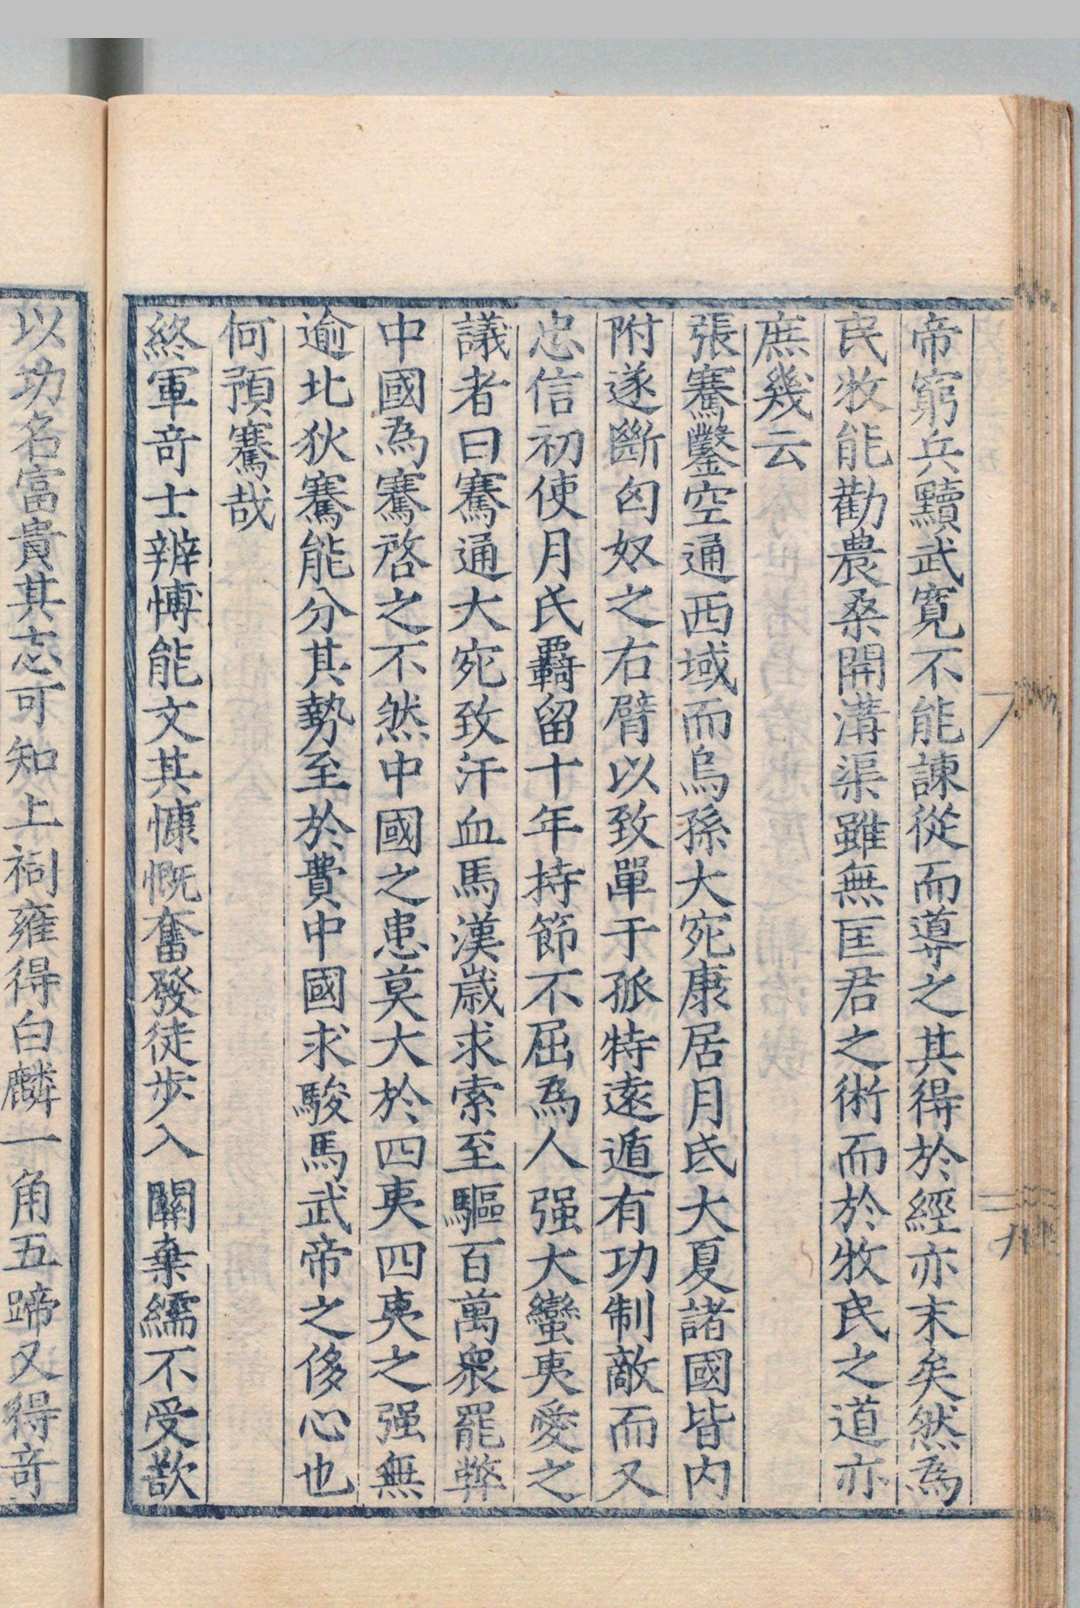 帝窮兵黷武寛不能諫從而導之其得於經亦末矣然為
民牧能勸農桑開溝渠雖無匡君之術而於牧民之道亦
庶幾云
張騫鑿空通西域而烏孫大宛康居月氐大夏諸國皆内
附遂斷匈奴之右臂以致單于孤特遠遁有功制敵而又
忠信初使月氏羇留十年持節不屈為人强大蠻夷愛之
議者曰騫通大宛致汗血馬漢歲求索至驅百萬衆罷弊
中國為騫啓之不然中國之患莫大於四夷四夷之强無
逾北狄騫能分其勢至於費中國求駿馬武帝之侈心也
何預騫哉
終軍竒士辨愽能文其慷慨奮發徒步入關棄繻不受歎
以功名富貴其志可知上祠雍得白麟一角五蹄又得竒